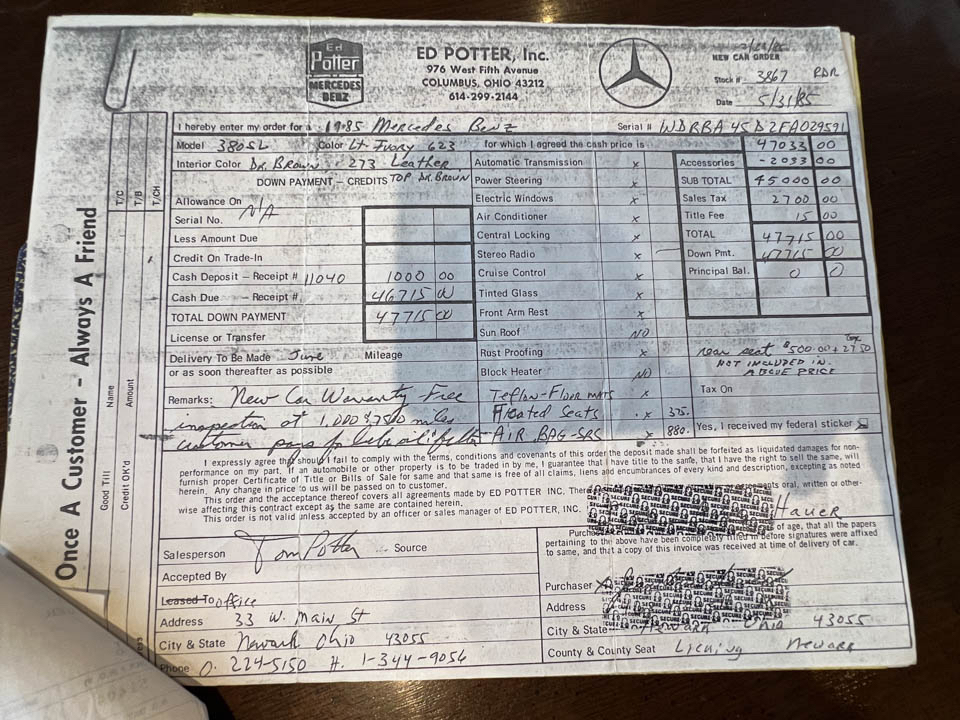 Ed
Potter
MERCEDES
BENZ
ED POTTER, Inc.
976 West Fifth Avenue
COLUMBUS, OHIO 43212
614-299-2144
NEW CAR ORDER
Stock # 3867 RDR
Date 5/31/85
I hereby enter my order for a 1985 Mercedes Benz Serial # WDBBA45D2FA029591
Model 380SL Color Lt Ivory 623 for which I agreed the cash price is 47033 00
Interior Color Dk. Brown 273 Leather Automatic Transmission x Accessories -2033 00
DOWN PAYMENT – CREDITS TOP DK. BROWN Power Steering x SUB TOTAL 45000 00
Allowance On Electric Windows x Sales Tax 2700 00
Serial No. N/A Air Conditioner x Title Fee 15 00
Less Amount Due Central Locking x TOTAL 47715 00
Credit On Trade-In Stereo Radio x Down Pmt. 47715 00
Cash Deposit – Receipt # 11040 1000 00 Cruise Control x Principal Bal. 0 0
Cash Due – Receipt # 46715 00 Tinted Glass x
TOTAL DOWN PAYMENT 47715 00 Front Arm Rest x
License or Transfer Sun Roof NO
Delivery To Be Made June Mileage Rust Proofing x rear seat $500.00 + 27.50 Tax
or as soon thereafter as possible Block Heater NO NOT INCLUDED IN ABOVE PRICE
Remarks: New Car Warranty Free Teflon-Floor mats x Tax On
inspection at 1,000 & 7500 miles Heated Seats x 375.
customer pays for lube oil & filter AIR BAG-SRS x 880. Yes, I received my federal sticker
I expressly agree that should I fail to comply with the terms, conditions and covenants of this order the deposit made shall be forfeited as liquidated damages for non-
performance on my part. If an automobile or other property is to be traded in by me, I guarantee that I have title to the same, that I have the right to sell the same, will
furnish proper Certificate of Title or Bills of Sale for same and that same is free of all claims, liens and encumbrances of every kind and description, excepting as noted
herein. Any change in price to us will be passed on to customer.
This order and the acceptance thereof covers all agreements made by ED POTTER INC. There oral, written or other-
wise affecting this contract except as the same are contained herein.
This order is not valid unless accepted by an officer or sales manager of ED POTTER, INC. Hauer
of age, that all the papers
pertaining to the above have been completely filled in before signatures were affixed
to same, and that a copy of this invoice was received at time of delivery of car.
Salesperson Tom Potter Source
Accepted By
Purchaser
Leased To office
Address 33 W. Main St
Address
City & State Newark Ohio 43055
City & State Newark Ohio 43055
Phone O. 224-5150 H. 1-344-9056
County & County Seat Licking Newark
Once A Customer - Always A Friend
T/C
T/B
T/CH
Name
Amount
Good Till
Credit OK'd